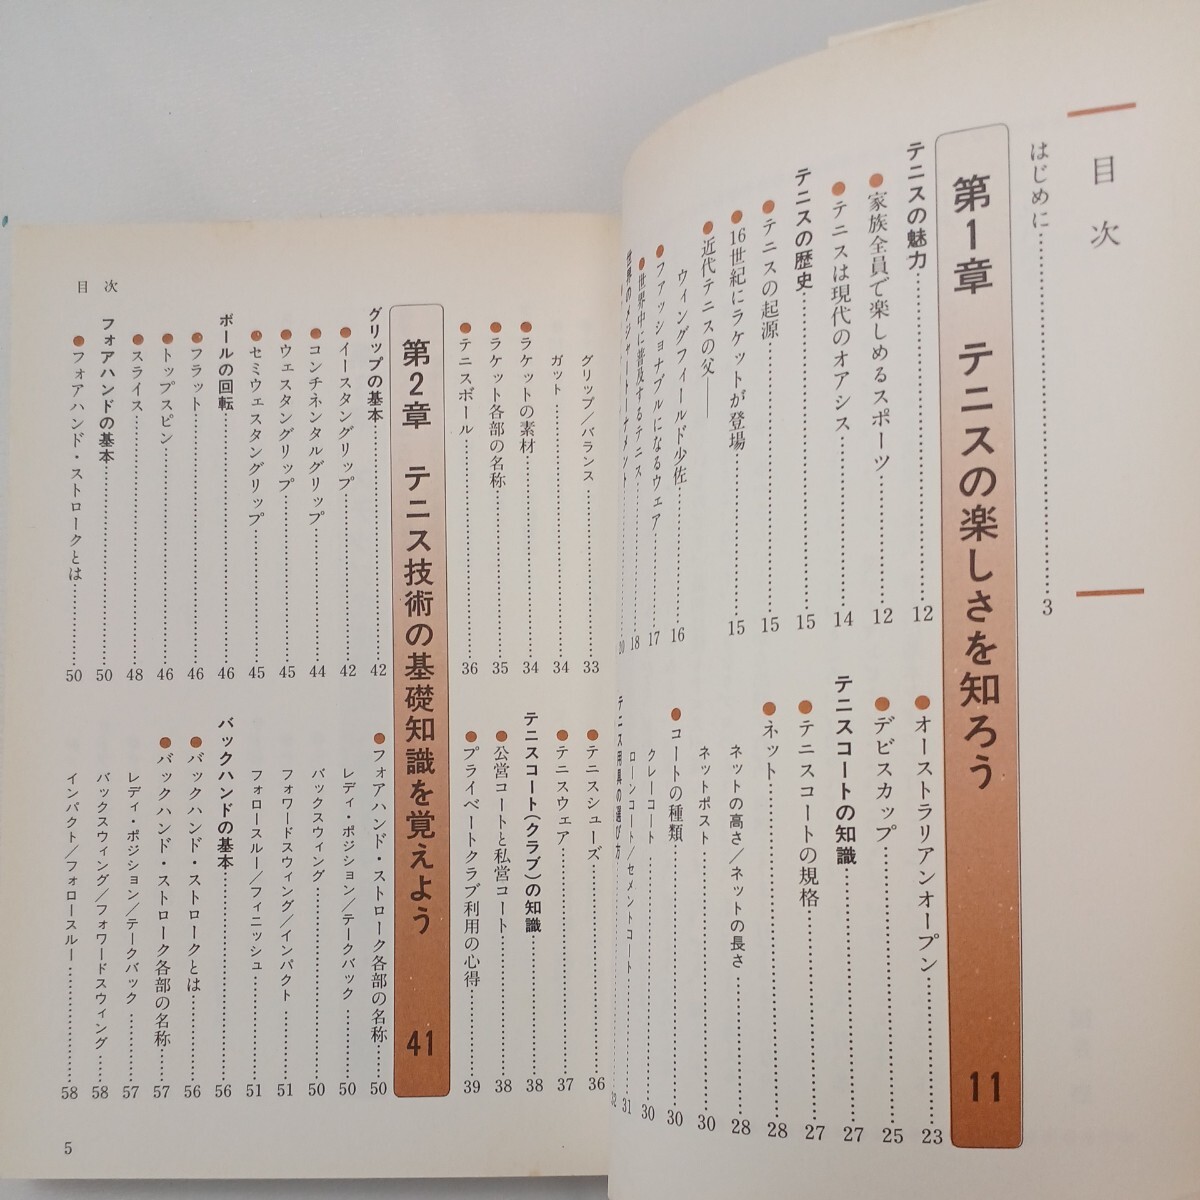 目次
はじめに……3
第1章 テニスの楽しさを知ろう 11
テニスの魅力……12
●家族全員で楽しめるスポーツ……12
●テニスは現代のオアシス……14
テニスの歴史……15
●テニスの起源……15
●16世紀にラケットが登場……15
●近代テニスの父——
ウィングフィールド少佐……16
●ファッショナブルになるウェア……17
●世界中に普及するテニス……18
世界のメジャートーナメント……20
●オーストラリアンオープン……23
●デビスカップ……25
テニスコートの知識……27
●テニスコートの規格……27
●ネット……28
ネットの高さ／ネットの長さ……28
ネットポスト……30
●コートの種類……30
クレーコート……30
ローンコート／セメントコート……31
テニス用具の選び方……32
グリップ／バランス……33
ガット……34
●ラケットの素材……34
●ラケット各部の名称……35
●テニスボール……36
●テニスシューズ……36
●テニスウェア……37
テニスコート(クラブ)の知識……38
●公営コートと私営コート……38
●プライベートクラブ利用の心得……39
第2章 テニス技術の基礎知識を覚えよう 41
グリップの基本……42
●イースタングリップ……42
●コンチネンタルグリップ……44
●ウェスタングリップ……45
●セミウェスタングリップ……45
ボールの回転……46
●フラット……46
●トップスピン……46
●スライス……48
フォアハンドの基本……50
●フォアハンド・ストロークとは……50
●フォアハンド・ストローク各部の名称……50
レディ・ポジション／テークバック……50
バックスウィング……50
フォワードスウィング／インパクト……51
フォロースルー／フィニッシュ……51
バックハンドの基本……56
●バックハンド・ストロークとは……56
●バックハンド・ストローク各部の名称……57
レディ・ポジション／テークバック……57
バックスウィング／フォワードスウィング……58
インパクト／フォロースルー……58
目次
5